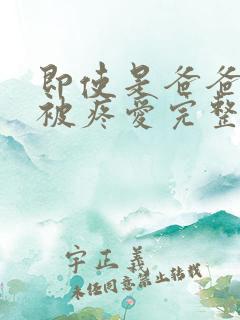 即使是爸爸
被疼爱完整
宇正義
未经同意禁止转载